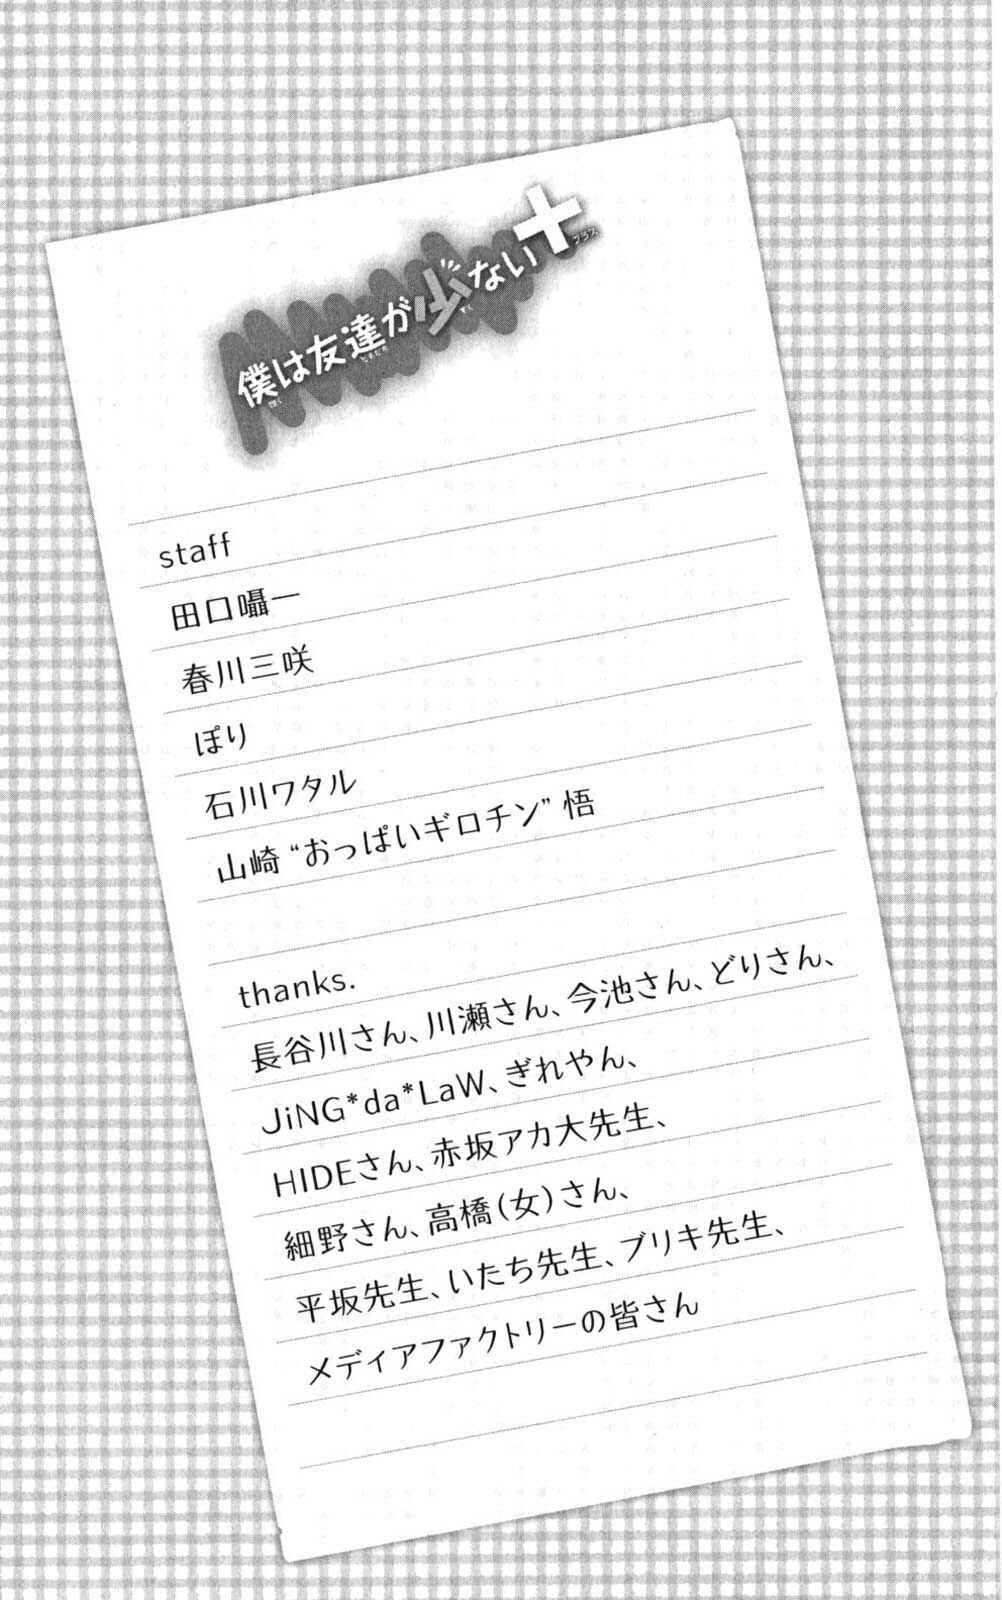 僕は友達が少ない＋
プラス
staff
田口囁一
春川三咲
ぽり
石川ワタル
山崎 “おっぱいギロチン” 悟
thanks.
長谷川さん、川瀬さん、今池さん、どりさん、
JiNG*da*LaW、ぎれやん、
HIDEさん、赤坂アカ大先生、
細野さん、高橋（女）さん、
平坂先生、いたち先生、ブリキ先生、
メディアファクトリーの皆さん